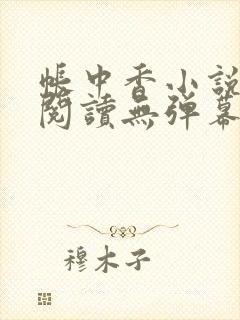 帳中香小說
閱讀無彈幕
穆木子